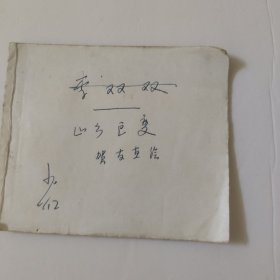 李双双
山乡巨变
贺友直绘